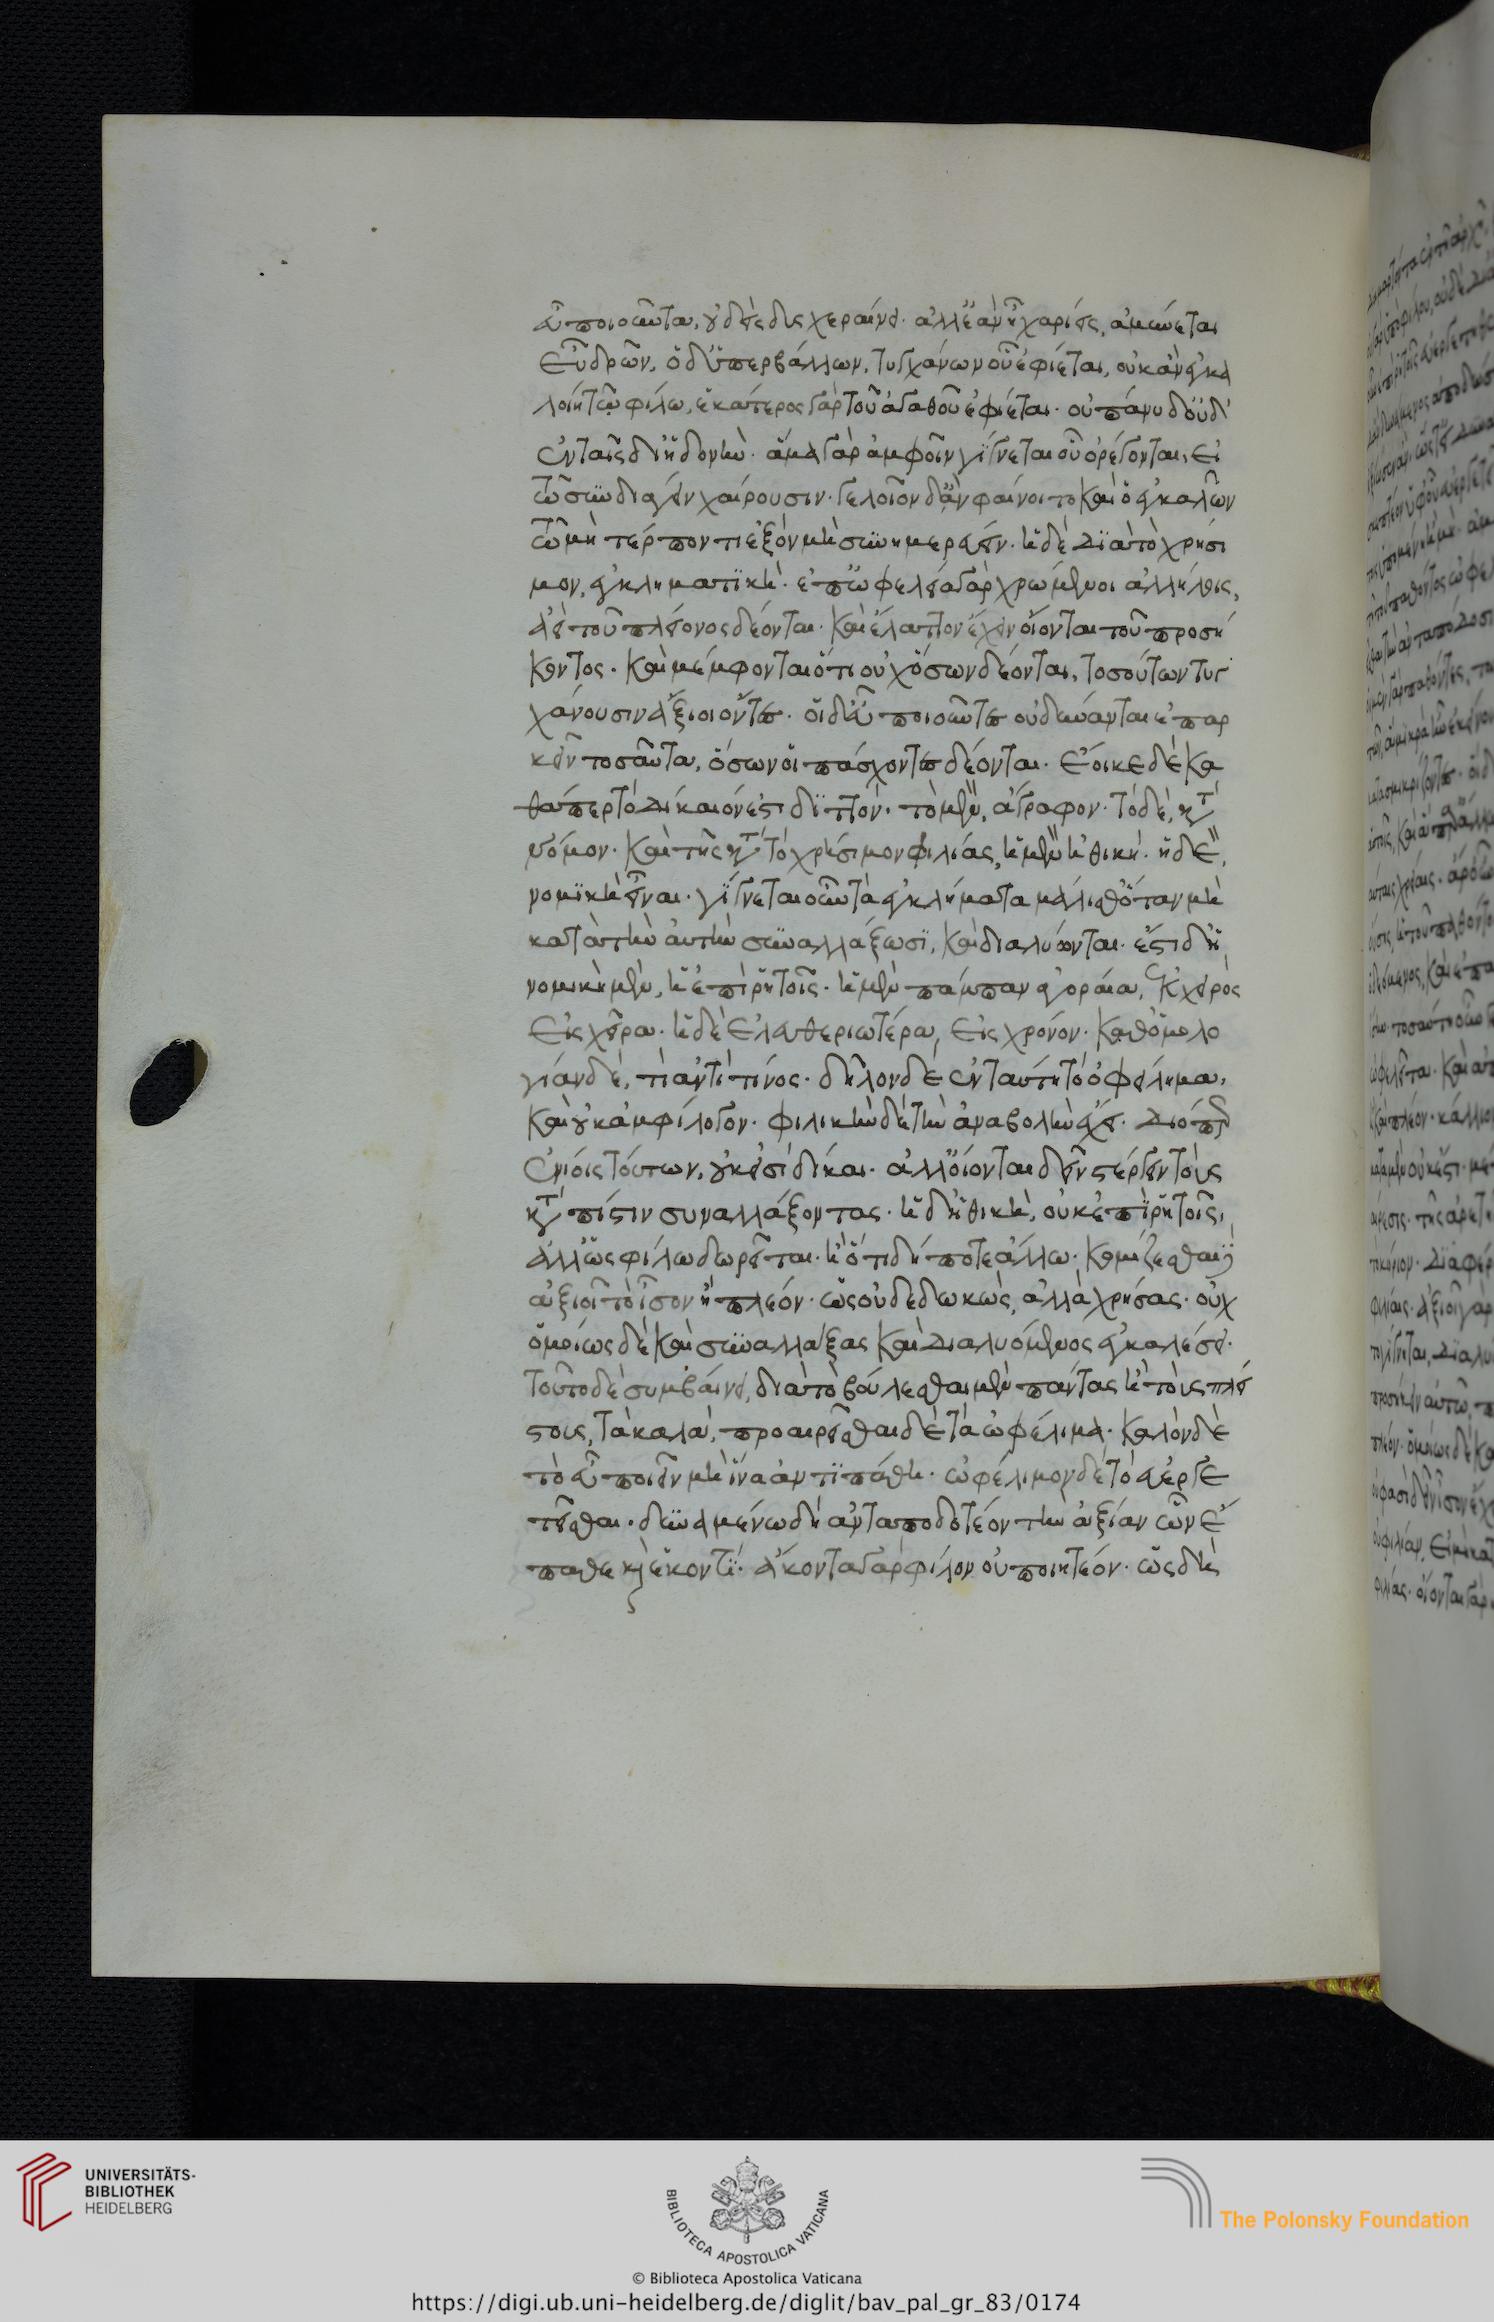 εὖ ποιοῦντα, οὐδεὶς δυσχεραίνει· ἀλλ' ἐὰν ᾖ χαρίεις, ἀμύνεται
εὖ δρῶν. ὁ δ' ὑπερβάλλων, τυγχάνων οὗ ἐφίεται, οὐκ ἂν ἐγκα
λοίη τῷ φίλῳ, ἑκάτερος γὰρ τοῦ ἀγαθοῦ ἐφίεται· οὐ πάνυ δ' οὐδ'
ἐν ταῖς δι' ἡδονήν· ἅμα γὰρ ἀμφοῖν γίγνεται οὗ ὀρέγονται, εἰ
τῷ συνδιάγειν χαίρουσιν· γελοῖον δ' ἂν φαίνοιτο καὶ ὁ ἐγκαλῶν
τῷ μὴ τέρποντι ἐξὸν μὴ συνημερεύειν. ἡ δὲ διὰ τὸ χρήσι
μον, ἐγκληματική· ἐπ' ὠφελείᾳ γὰρ χρώμενοι ἀλλήλοις,
ἀεὶ τοῦ πλείονος δέονται· καὶ ἔλαττον ἔχειν οἴονται τοῦ προσή
κοντος· καὶ μέμφονται ὅτι οὐχ ὅσων δέονται, τοσούτων τυγ
χάνουσιν ἄξιοι ὄντες· οἱ δ' εὖ ποιοῦντες οὐ δύνανται ἐπαρ
κεῖν τοσαῦτα, ὅσων οἱ πάσχοντες δέονται. ἔοικε δὲ κα
θάπερ τὸ δίκαιόν ἐστι διττόν· τὸ μὲν, ἄγραφον· τὸ δὲ, κατὰ
νόμον· καὶ τῆς κατὰ τὸ χρήσιμον φιλίας, ἡ μὲν ἠθική· ἡ δὲ,
νομικὴ εἶναι· γίγνεται οὖν τὰ ἐγκλήματα μάλισθ' ὅταν μὴ
κατὰ τὴν αὐτὴν συναλλάξωσι, καὶ διαλύωνται· ἔστι δ' ἡ
νομικὴ μὲν, ἡ ἐπὶ ῥητοῖς· ἡ μὲν πάμπαν ἀγοραία, ἐκ χειρὸς
εἰς χεῖρα· ἡ δὲ ἐλευθεριωτέρα, εἰς χρόνον· καθ' ὁμολο
γίαν δὲ, τί ἀντὶ τίνος· δῆλον δὲ ἐν ταύτῃ τὸ ὀφείλημα,
καὶ οὐκ ἀμφίλογον· φιλικὴν δὲ τὴν ἀναβολὴν ἔχει· διόπερ
ἐνίοις τούτων, οὐκ εἰσὶ δίκαι· ἀλλ' οἴονται δεῖν στέργειν τοὺς
κατὰ πίστιν συναλλάξοντας· ἡ δ' ἠθικὴ, οὐκ ἐπὶ ῥητοῖς,
ἀλλ' ὡς φίλῳ δωρεῖται· ἢ ὁτιδήποτε ἄλλο· κομίζεσθαι δὲ
ἀξιοῖ τὸ ἴσον ἢ πλέον· ὡς οὐ δεδωκὼς, ἀλλὰ χρήσας· οὐχ
ὁμοίως δὲ καὶ συναλλάξας καὶ διαλυόμενος ἐγκαλέσει·
τοῦτο δὲ συμβαίνει, διὰ τὸ βούλεσθαι μὲν πάντας ἢ τοὺς πλεί
στους, τὰ καλὰ, προαιρεῖσθαι δὲ τὰ ὠφέλιμα· καλὸν δὲ
τὸ εὖ ποιεῖν μὴ ἵνα ἀντιπάθῃ· ὠφέλιμον δὲ τὸ εὐεργε
τεῖσθαι· δυναμένῳ δὴ ἀνταποδοτέον τὴν ἀξίαν ὧν ἔ
παθε καὶ ἑκόντι· ἄκοντα γὰρ φίλον οὐ ποιητέον· ὡς δὴ
UNIVERSITÄTS-
BIBLIOTHEK
HEIDELBERG
BIBLIOTECA APOSTOLICA VATICANA
The Polonsky Foundation
© Biblioteca Apostolica Vaticana
https://digi.ub.uni-heidelberg.de/diglit/bav_pal_gr_83/0174